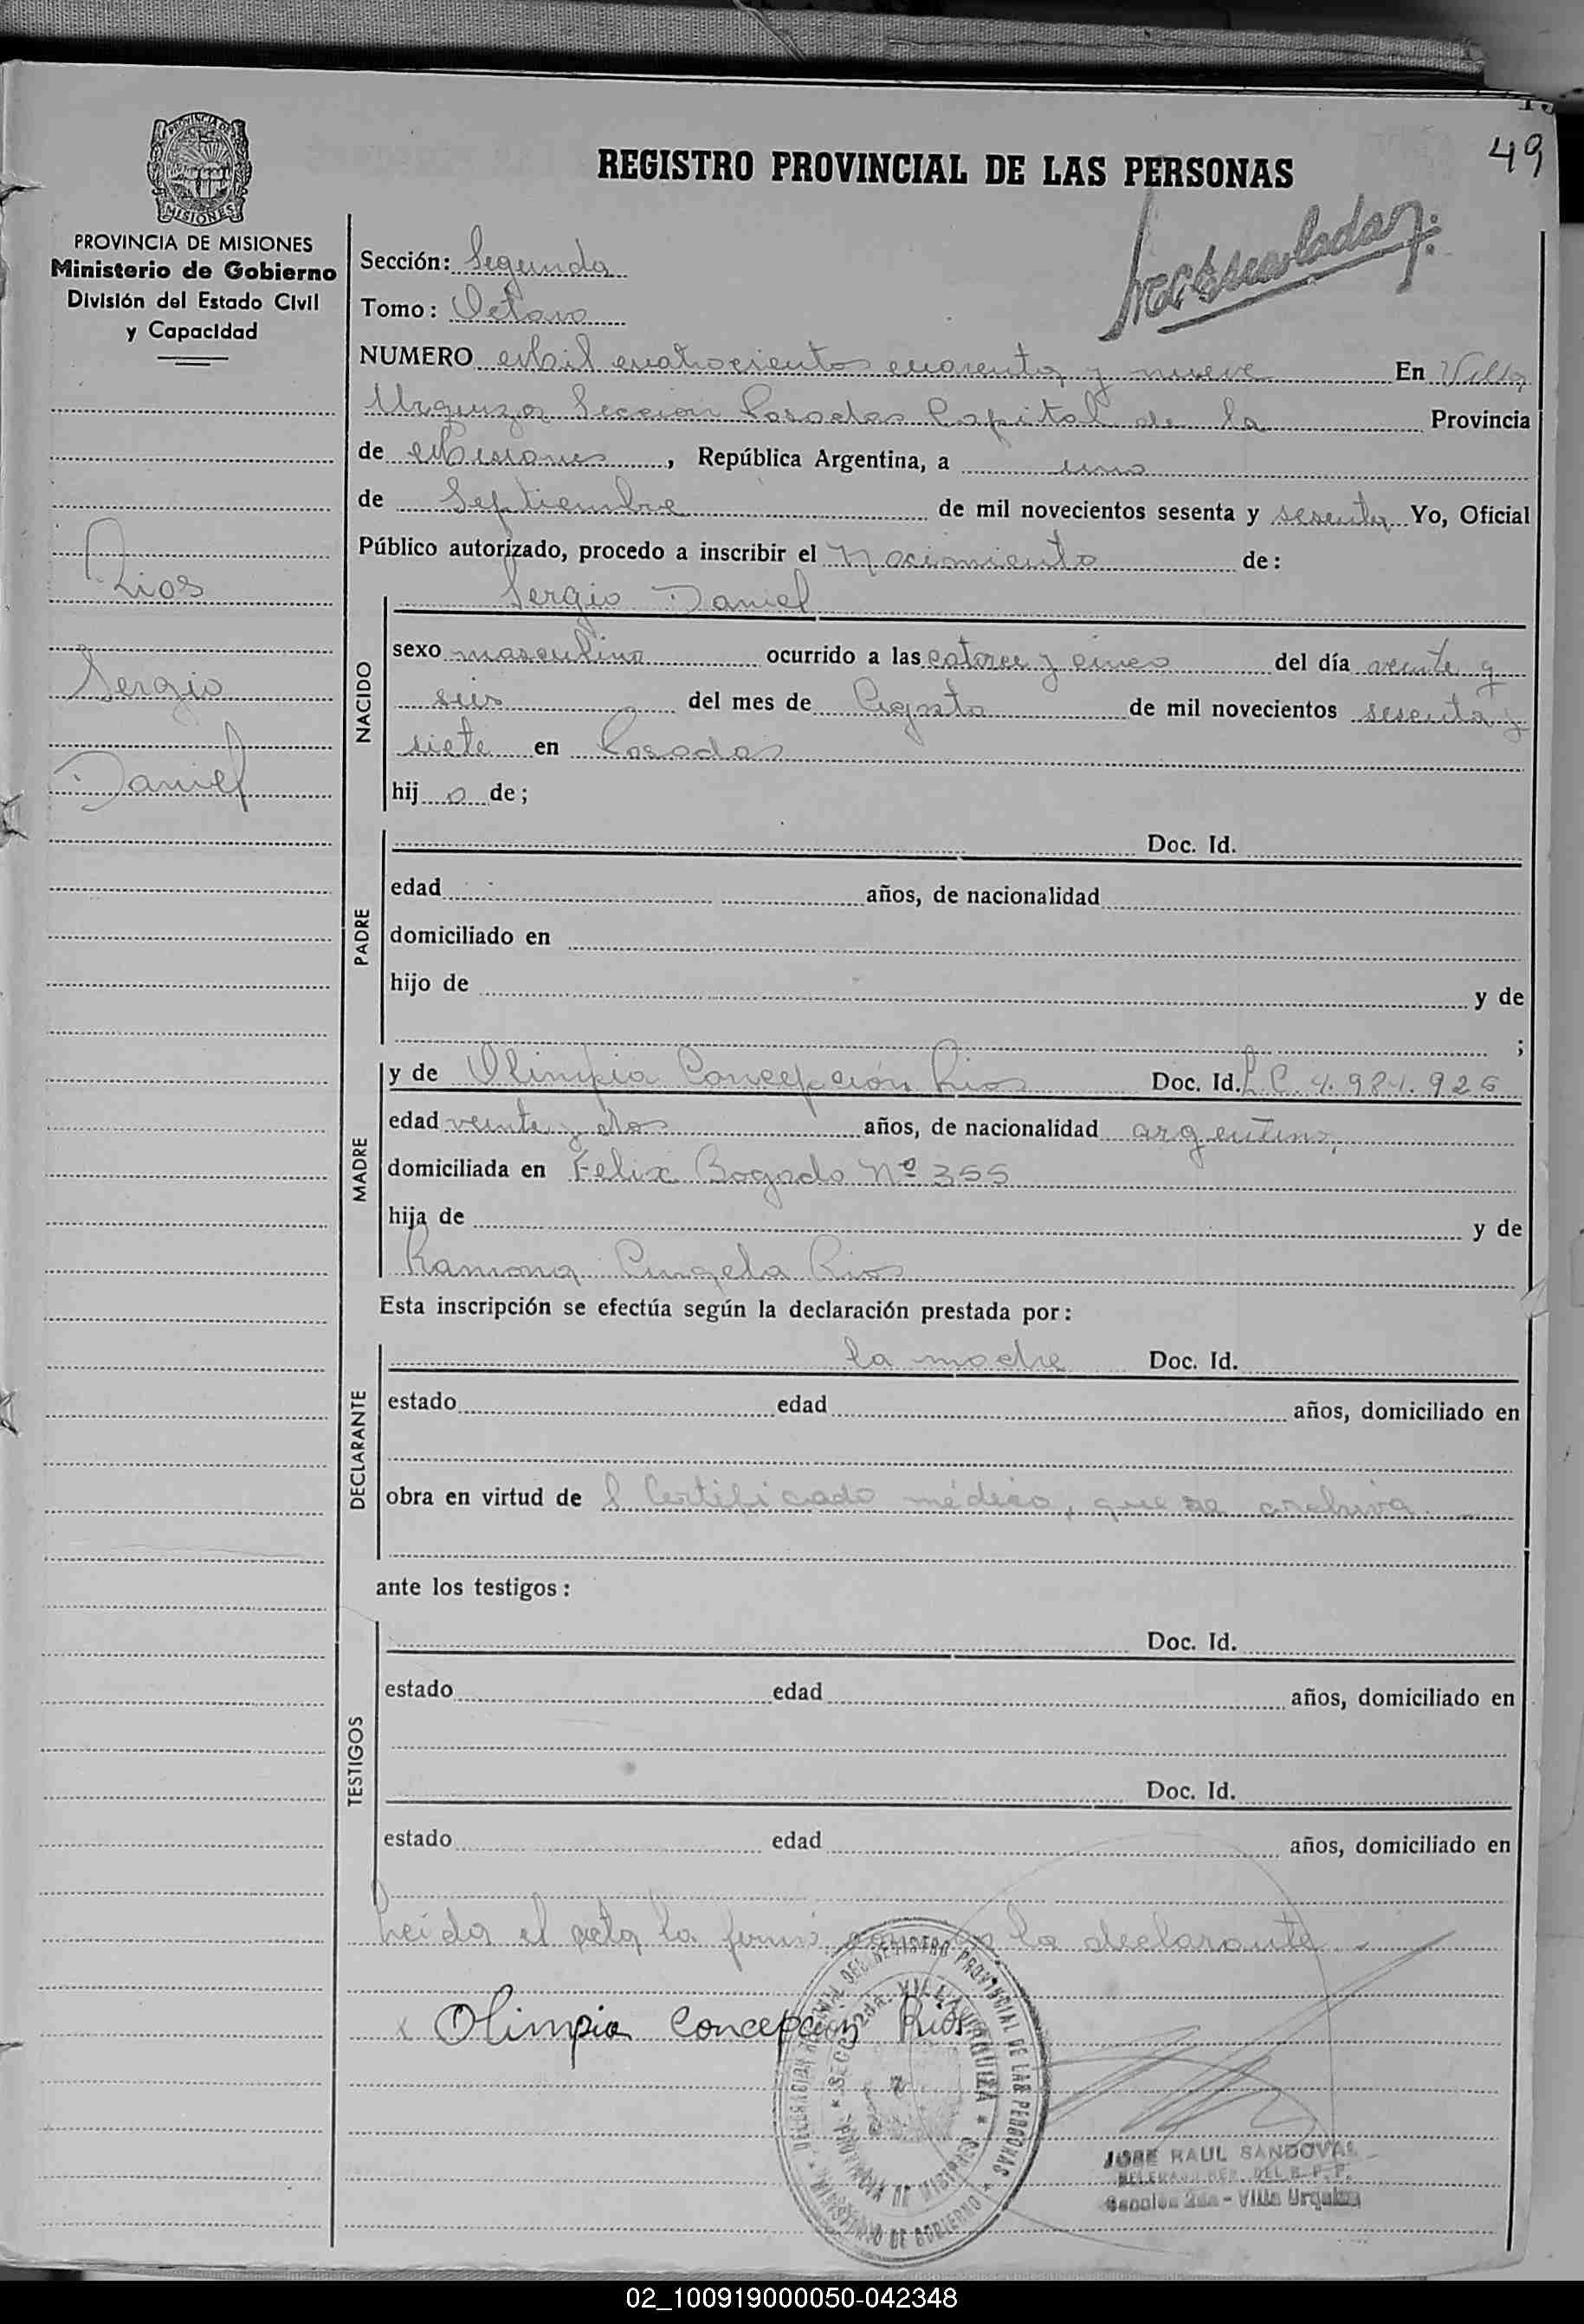 49
REGISTRO PROVINCIAL DE LAS PERSONAS
PROVINCIA DE MISIONES
Ministerio de Gobierno
División del Estado Civil
y Capacidad
Rios
Sergio
Daniel
Sección: Segunda
Tomo: Octavo
NUMERO Mil cuatrocientos cuarenta y nueve En Villa
Urquiza Sección Posadas Capital de la Provincia
de Misiones, República Argentina, a uno
de Septiembre de mil novecientos sesenta y Yo, Oficial
Público autorizado, procedo a inscribir el Nacimiento de:
NACIDO
Sergio Daniel
sexo masculino ocurrido a las catorce y cinco del día veinte y
seis del mes de Agosto de mil novecientos sesenta y
siete en Posadas
hij o de;
PADRE
Doc. Id.
edad años, de nacionalidad
domiciliado en
hijo de y de
;
MADRE
y de Olimpia Concepción Rios Doc. Id. L.C 4.981.925
edad veinte y dos años, de nacionalidad argentina,
domiciliada en Felix Bogado Nº 355
hija de y de
Ramona Angela Rios
Esta inscripción se efectúa según la declaración prestada por:
DECLARANTE
la madre Doc. Id.
estado edad años, domiciliado en
obra en virtud de l Certificado médico, que se archiva
ante los testigos:
TESTIGOS
Doc. Id.
estado edad años, domiciliado en
Doc. Id.
estado edad años, domiciliado en
Leída el acta la firmó la declarante
Olimpia Concepcion Rios
DELEGACION DEL REGISTRO PROVINCIAL DE LAS PERSONAS
SECC. 2da. VILLA URQUIZA
PROVINCIA DE MISIONES
MINISTERIO DE GOBIERNO
JOSE RAUL SANDOVAL
DEL R. P. P.
Sección 2da - Villa Urquiza
02_100919000050-042348